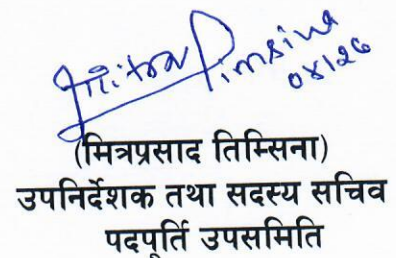 Mitra Timsina
04/26
(मित्रप्रसाद तिम्सिना)
उपनिर्देशक तथा सदस्य सचिव
पदपूर्ति उपसमिति